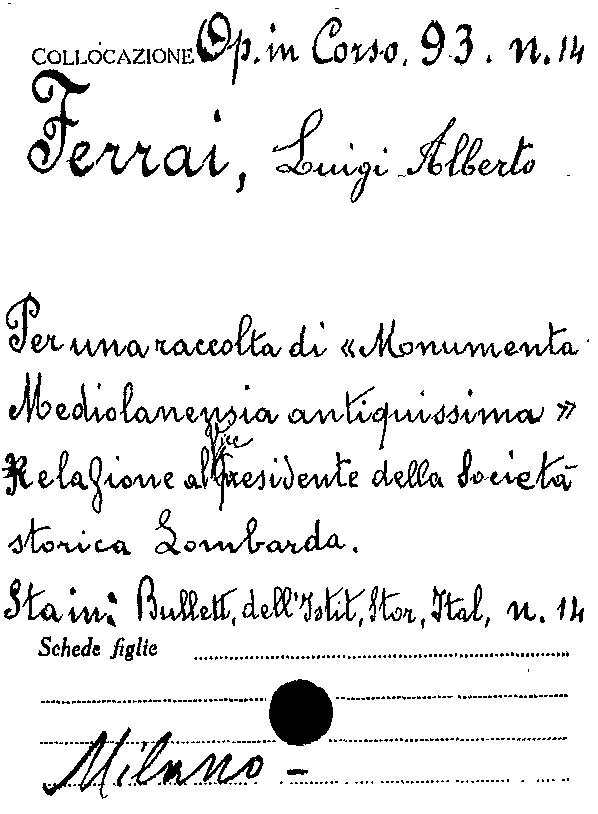 COLLOCAZIONE Op. in Corso. 93. n. 14
Ferrai, Luigi Alberto
Per una raccolta di «Monumenta
Mediolanensia antiquissima»
Vice
Relazione al Presidente della Società
storica Lombarda.
Sta in: Bullett, dell'Istit, Stor, Ital, n. 14
Schede figlie
Milano -